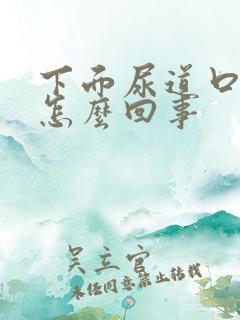 下而尿道口
怎麼回事
吴立官
未经同意禁止转载